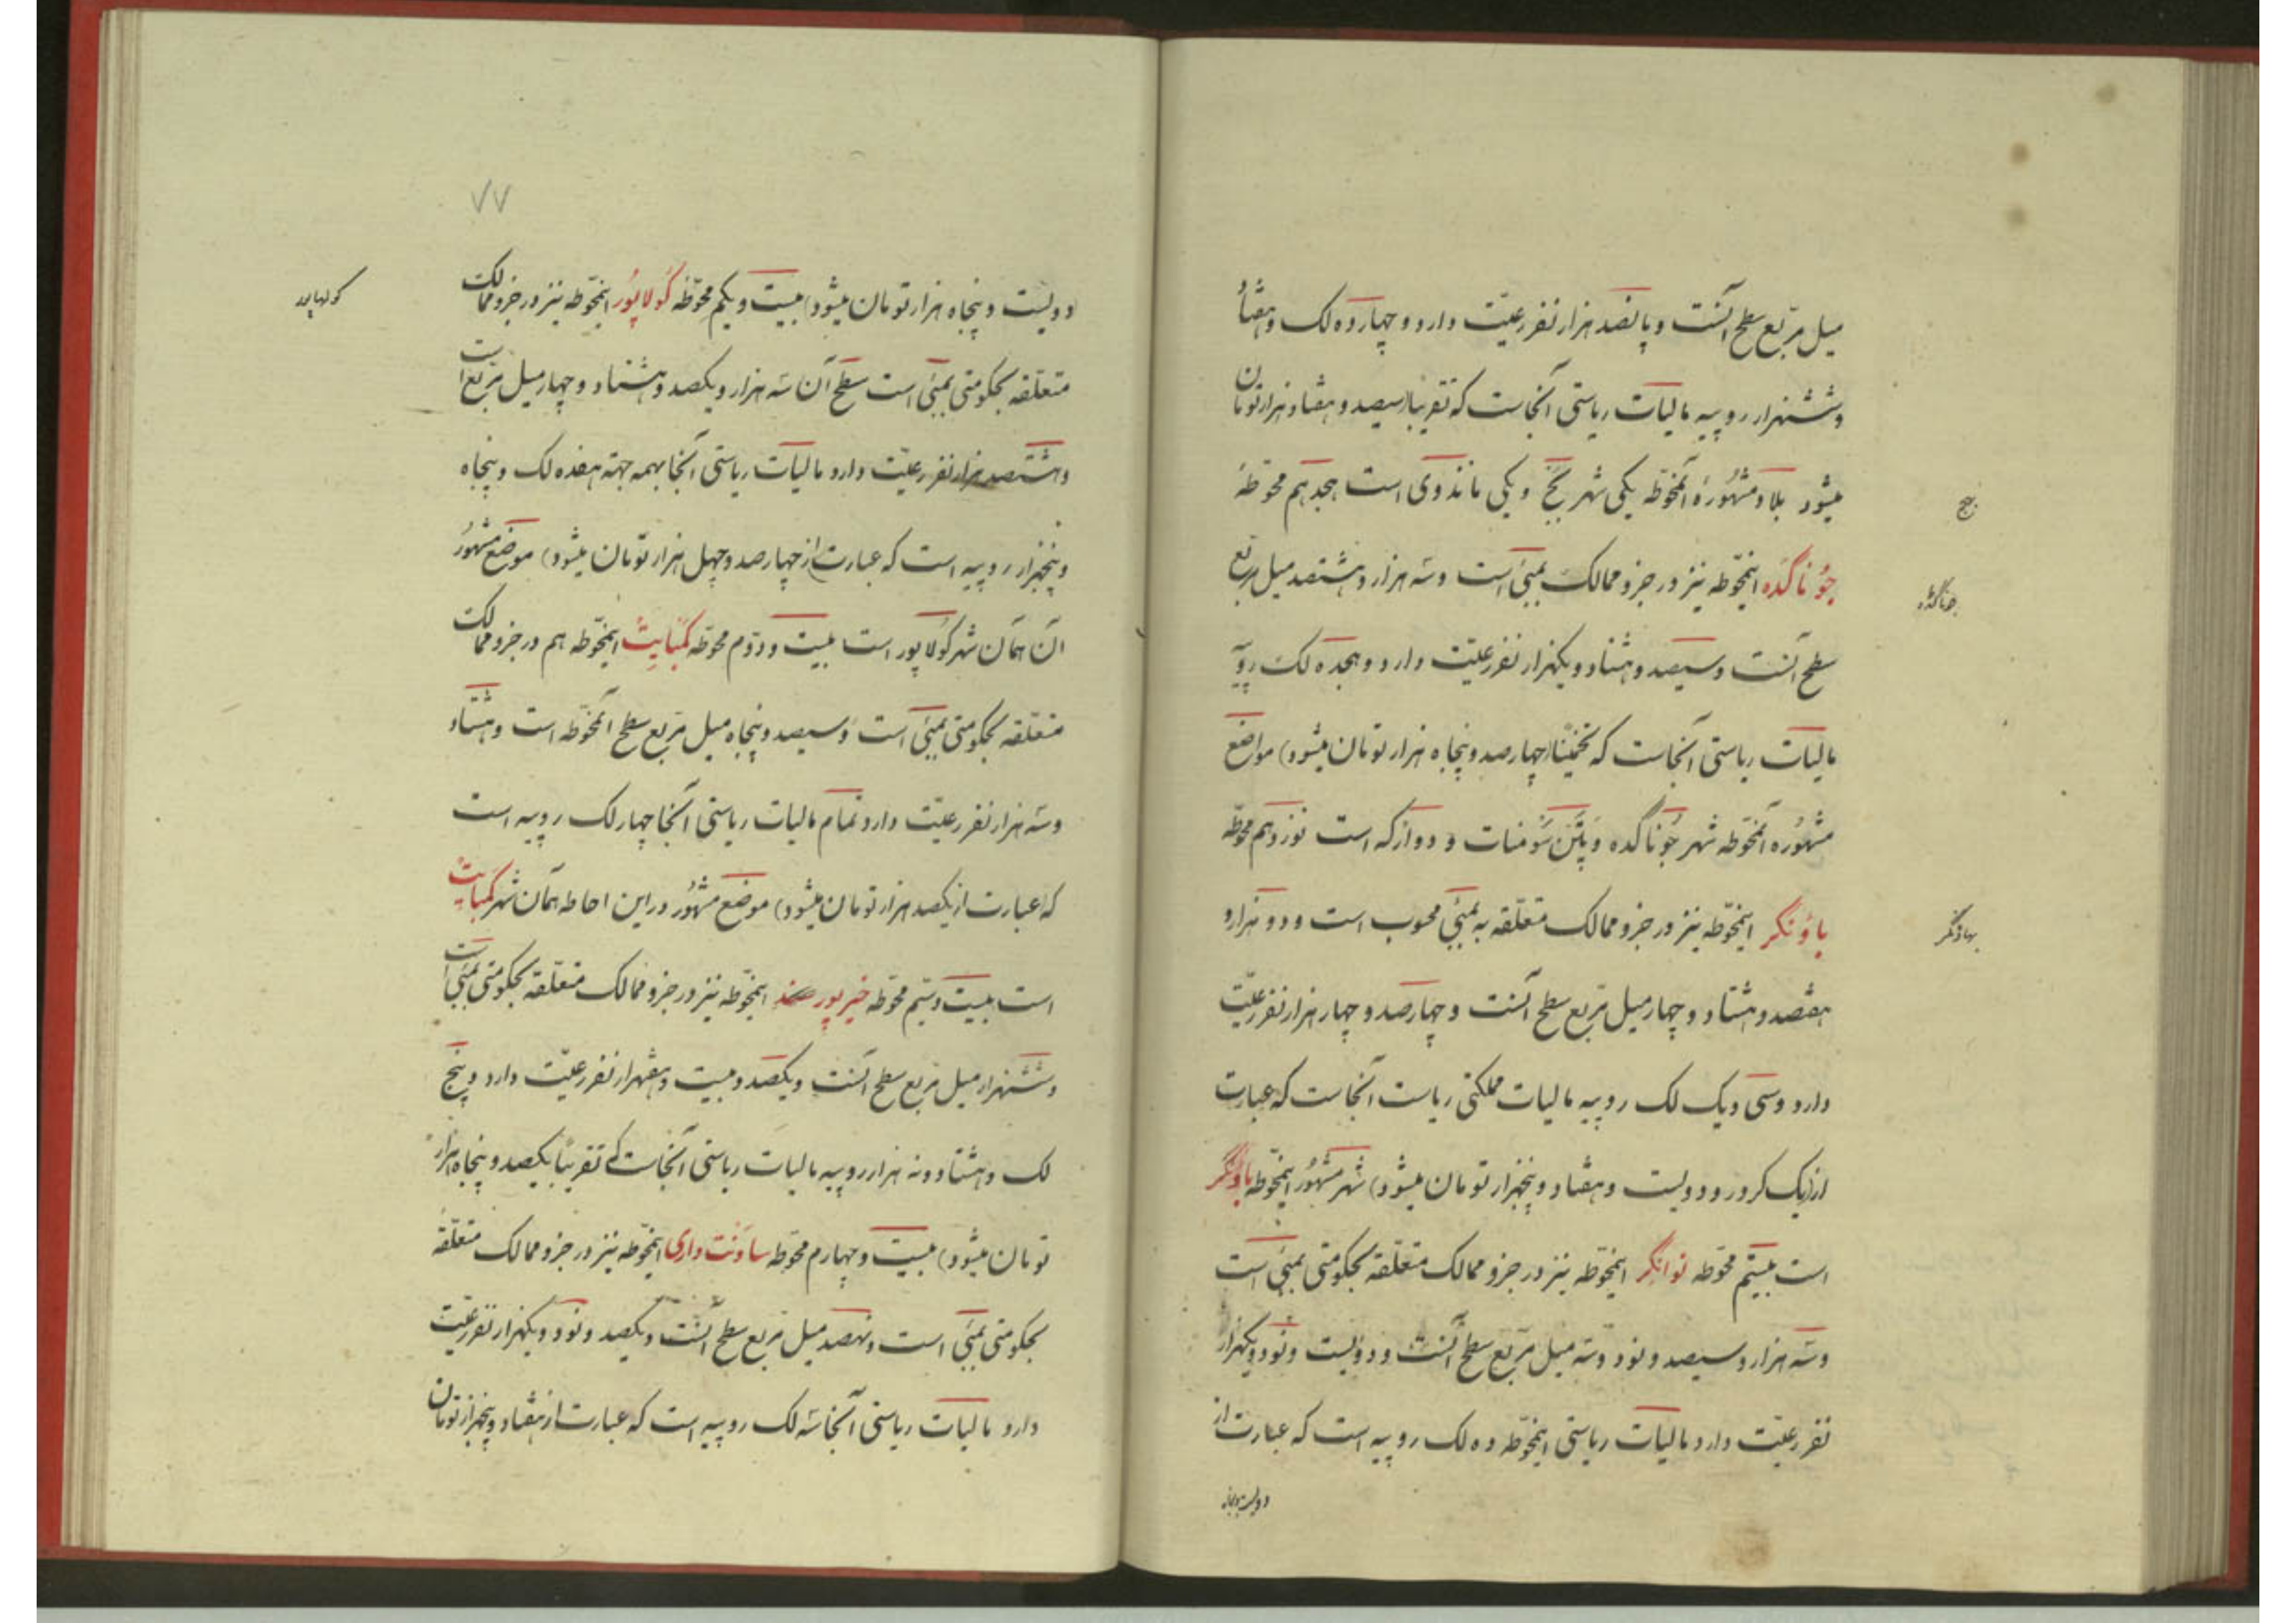 میل مربّع سطح آنست و پانصد هزار نفر رعیّت دارد و چهارده لک و هشتاد
و ششهزار روپیه مالیات ریاستی آنجاست که تقریباً سیصد و هفتاد هزار تومان
میشود بلاد مشهورهٔ آنمحوّطه یکی شهر کچ و یکی ماندوی است هجدهم محوّطهٔ
کچ
جوُناگده اینمحوّطه نیز در جزو ممالک بمبئی است و سه هزار و هشتصد میل مربع
جوناگده
سطح آنست و سیصد و هشتاد و یکهزار نفر رعیّت دارد و هجده لک روپیه
مالیات ریاستی آنجاست که تخمیناً (چهارصد و پنجاه هزار تومان میشود) مواضع
مشهوره آنمحوّطه شهر جوناگده و پتن سومنات و دوازکه است نوزدهم محوّطه
باوُنگر اینمحوّطه نیز در جزو ممالک متعلّقه به بمبئی محسوب است و دو هزار و
بهاونگر
هفتصد و هشتاد و چهار میل مربّع سطح آنست و چهارصد و چهار هزار نفر رعیّت
دارد و سی و یک لک روپیه مالیات مملکتی ریاست آنجاست که عبارت
از (یک کرور و دویست و هفتاد و پنجهزار تومان میشود) شهر مشهور اینمحوّطه باونگر
است بیستم محوّطه نوانگر اینمحوّطه نیز در جزو ممالک متعلّقه بحکومتی بمبئی است
و سه هزار و سیصد و نود و سه میل مربّع سطح آنست و دویست و نود و یکهزار
نفر رعیّت دارد مالیات ریاستی اینمحوّطه ده لک روپیه است که عبارت از
دویست و پنجاه
۷۷
دویست و پنجاه هزار تومان میشود) بیست و یکم محوّطه کولاپُور اینمحوّطه نیز در جزو ممالک
کولهاپور
متعلّقه بحکومتی بمبئی است سطح آن سه هزار و یکصد و هشتاد و چهار میل مربّع است
و هشتصد هزار نفر رعیّت دارد مالیات ریاستی آنجا بهمه جهته هفده لک و پنجاه
و پنجهزار روپیه است که عبارت (از چهارصد و چهل هزار تومان میشود) موضع مشهور
آن همان شهر کولاپور است بیست و دوّم محوّطه کمبایت اینمحوّطه هم در جزو ممالک
متعلّقه بحکومتی بمبئی است و سیصد و پنجاه میل مربّع سطح آنمحوّطه است و هشتاد
و سه هزار نفر رعیّت دارد تمام مالیات ریاستی آنجا چهار لک روپیه است
که (عبارت از یکصد هزار تومان میشود) موضع مشهور در این احاطه همان شهر کمبایت
است بیست و سیّم محوّطه خیرپور سند اینمحوّطه نیز در جزو ممالک متعلّقه بحکومتی بمبئی است
و ششهزار میل مربّع سطح آنست و یکصد و بیست و هفهزار نفر رعیّت دارد و پنج
لک و هشتاد و نه هزار روپیه مالیات ریاستی آنجاست که تقریباً یکصد و پنجاه هزار
تومان میشود) بیست و چهارم محوّطه ساونت واری اینمحوّطه نیز در جزو ممالک متعلّقه
بحکومتی بمبئی است و نهصد میل مربّع سطح آنست و یکصد و نود و یکهزار نفر رعیّت
دارد مالیات ریاستی آنجا سه لک روپیه است که عبارت از هفتاد و پنجهزار تومان